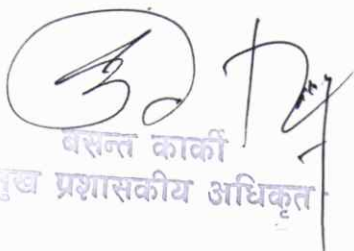 बसन्त कार्की
मुख प्रशासकीय अधिकृत